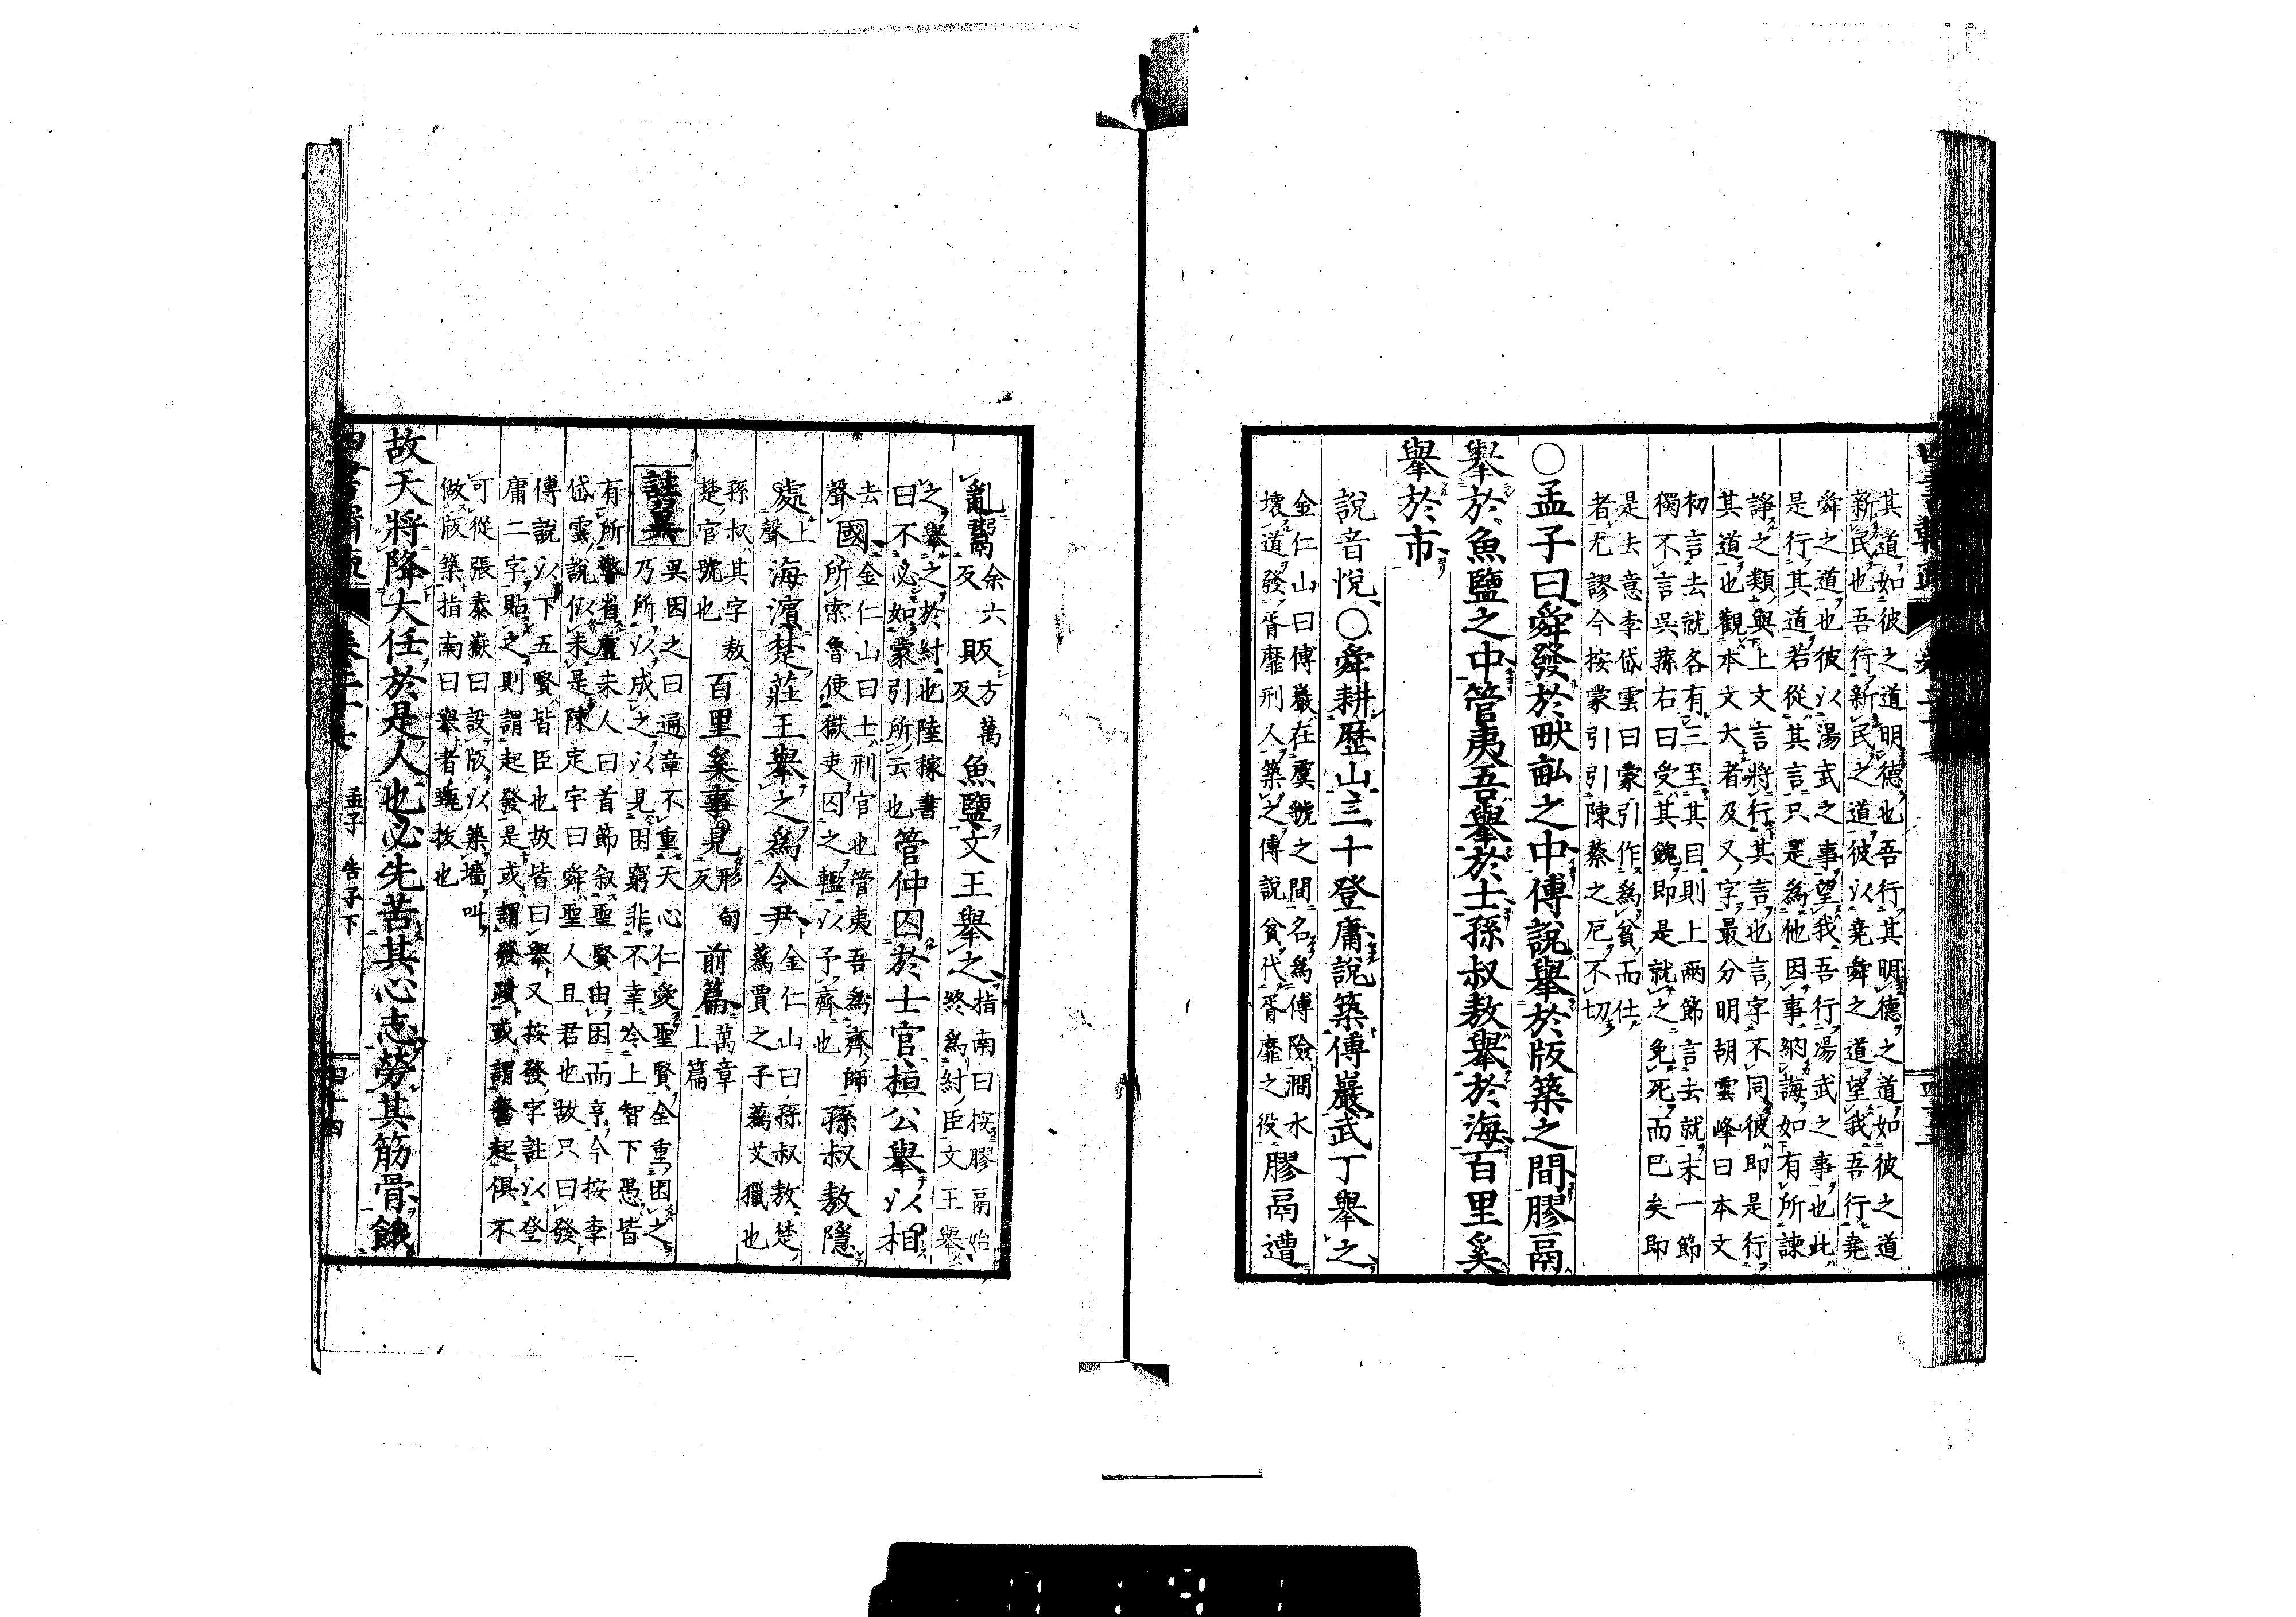 其道如彼之道明德也吾行其明德之道如彼之道
新民也吾行新民之道彼以堯舜之道望我吾行堯
舜之道也彼以湯武之事望我吾行湯武之事也此
是行其道若從其言只是為他因事納誨如有所諫
諍之類與上文言將行其言也言字不同彼即是行
其道也觀本文大者及又字最分明胡雲峰曰本文
初言去就各有三至其目則上兩節言去就末一節
獨不言吳蓀右曰受其餽即是就之免死而已矣即
是去意李岱雲曰蒙引作為貧而仕
者尤謬今按蒙引引陳蔡之厄不切
○孟子曰舜發於畎畝之中傅說舉於版築之間膠鬲
舉於魚鹽之中管夷吾舉於士孫叔敖舉於海百里奚
舉於市
說音悅○舜耕歷山三十登庸說築傅巖武丁舉之
金仁山曰傅巖在虞虢之間名為傅險澗水
壞道發胥靡刑人築之傅說貧代胥靡之役
膠鬲遭
亂鬻
余六
反
販
方萬
反
魚鹽文王舉之
指南曰按膠鬲始
終為紂臣文王舉
之舉之於紂也陸稼書
曰不必如蒙引所云也
管仲囚於士官桓公舉以相
去
聲
國
金仁山曰士刑官也管夷吾為齊師
所索魯使獄吏囚之檻以予齊也
孫叔敖隱
處
上
聲
海濱楚莊王舉之為令尹
金仁山曰孫叔敖楚
蒍賈之子蒍艾獵也
孫叔其字敖
楚官號也
百里奚事見
形甸
反
前篇
萬章
上篇
註翼
吳因之曰通章不重天心仁愛聖賢全重困之
乃所以成之以見困窮非不幸冷上智下愚皆
有所警省盧未人曰首節敘聖賢由困而亨今按李
岱雲說似未是陳定宇曰舜聖人且君也故只曰發
傅說以下五賢皆臣也故皆曰舉又按發字註以登
庸二字貼之則謂起發是或謂發蹟或謂奮起俱不
可從張泰嶽曰設版以築墻叫
做版築指南曰舉者甄拔也
故天將降大任於是人也必先苦其心志勞其筋骨餓
孟子 告子下